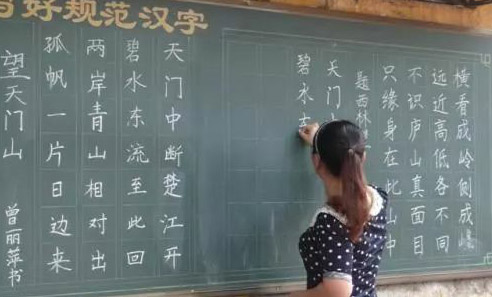 好规范汉字
横看成岭侧成峰
远近高低各不同
不识庐山真面目
只缘身在此山中
题西林
天门
碧水
天门中断楚江开
碧水东流至此回
两岸青山相对出
孤帆一片日边来
望天门山
曾丽萍书